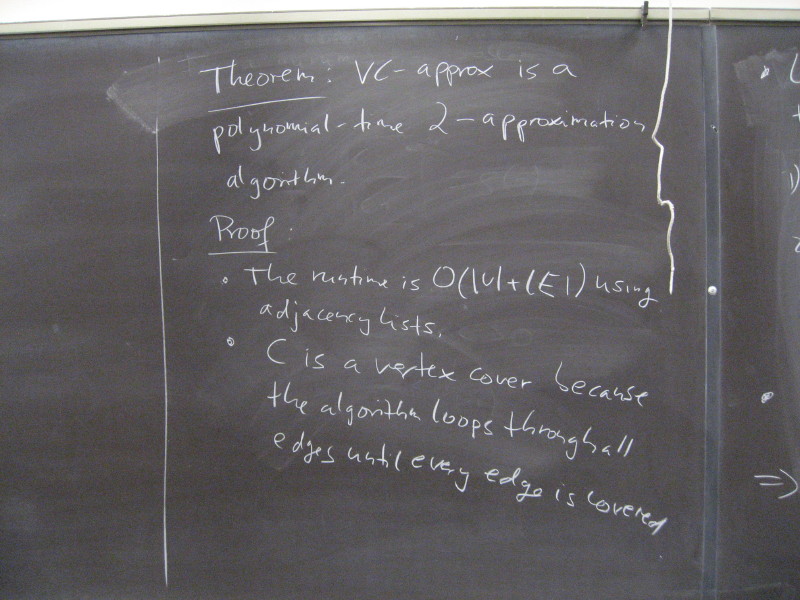 Theorem: VC-approx is a
polynomial-time 2-approximation
algorithm.
Proof:
• The runtime is O(|V|+|E|) using
adjacency lists.
• C is a vertex cover because
the algorithm loops through all
edges until every edge is covered
• L
1)
•
⇒